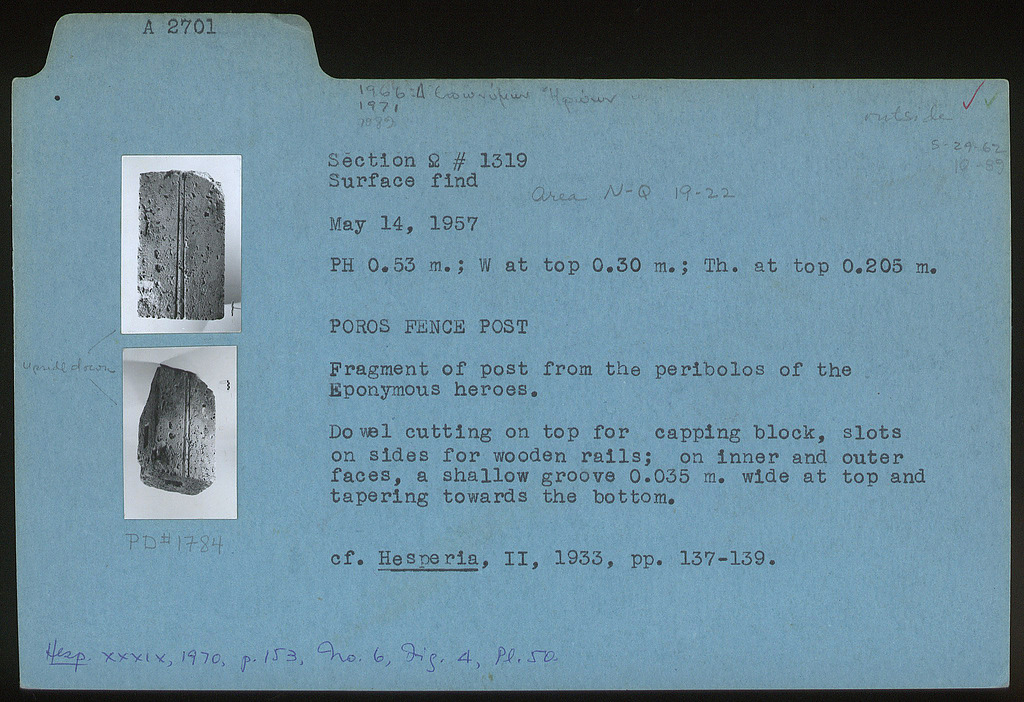 A 2701
1966:
1971
1989
outside
5-29-62
Section Ω # 1319
Surface find
Area N-Q 19-22
May 14, 1957
PH 0.53 m.; W at top 0.30 m.; Th. at top 0.205 m.
POROS FENCE POST
upside down
Fragment of post from the peribolos of the
Eponymous heroes.
Dowel cutting on top for capping block, slots
on sides for wooden rails; on inner and outer
faces, a shallow groove 0.035 m. wide at top and
tapering towards the bottom.
PD#1784
cf. Hesperia, II, 1933, pp. 137-139.
Hesp. XXXIX, 1970, p. 153, No. 6, Fig. 4, Pl. 50